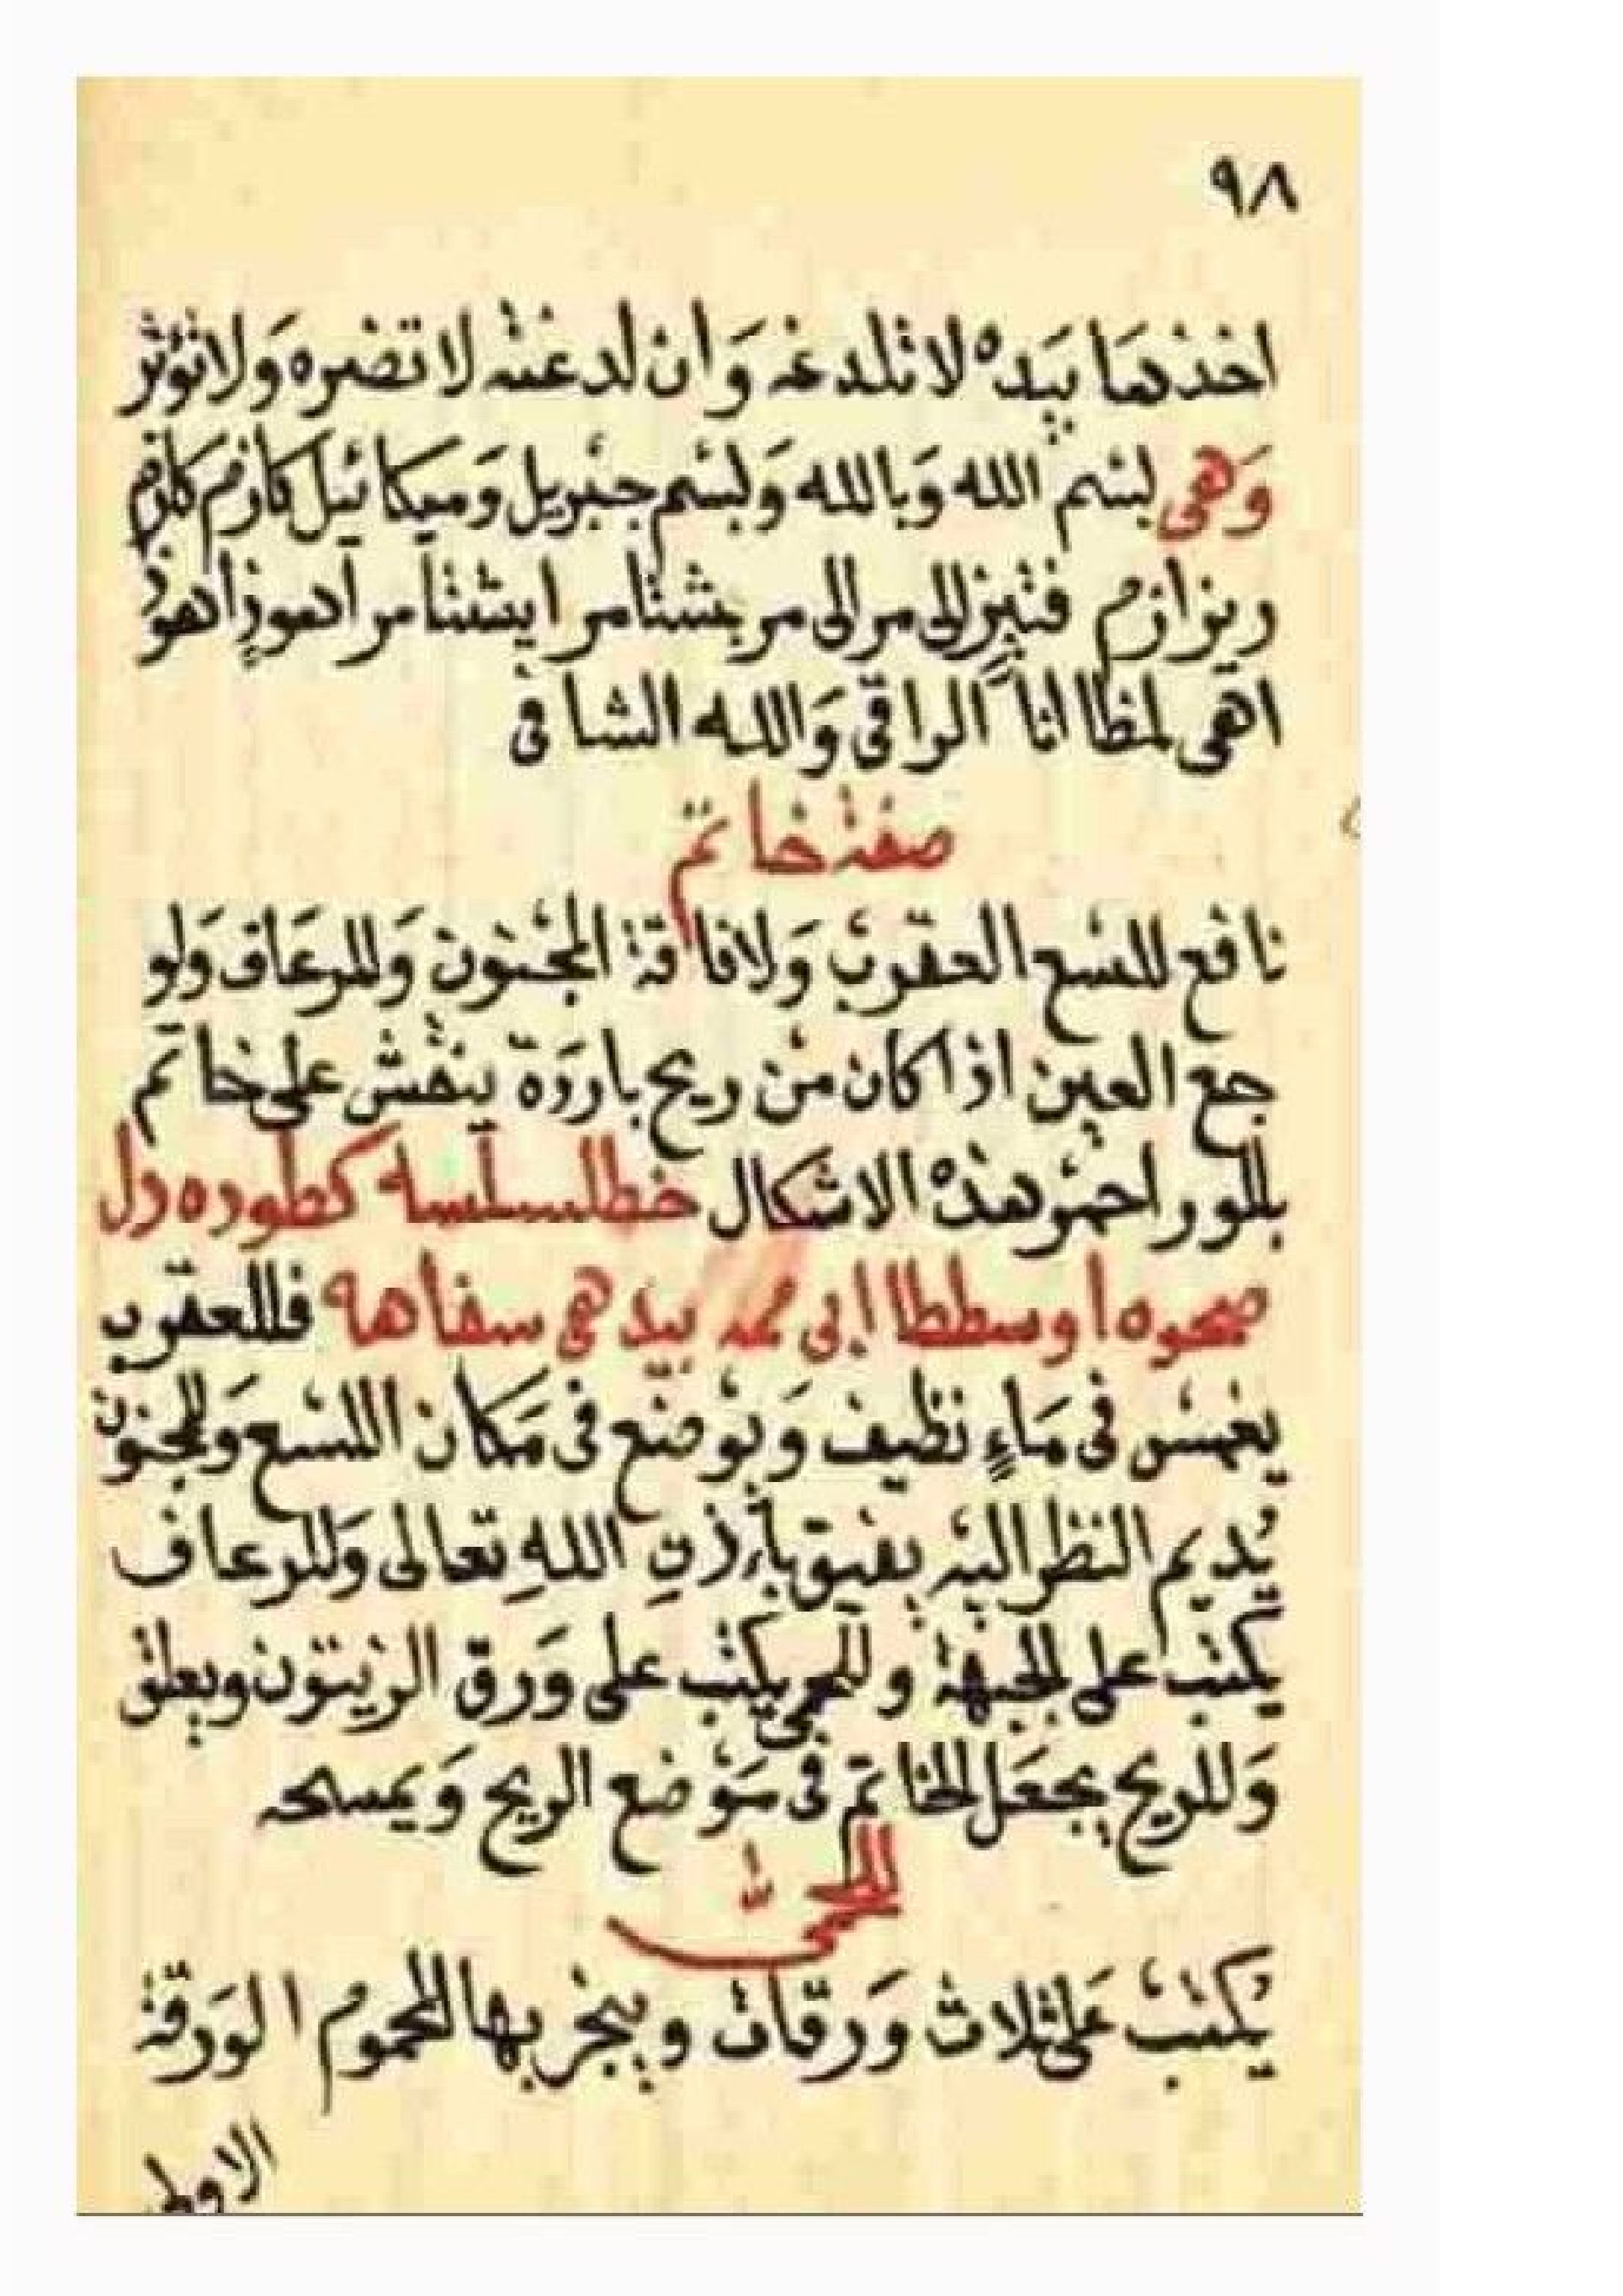 ٩٨
اخذها بيده لا تلدغه وَان لدغته لا تضره وَلا تؤثر
وَهى بسم الله وَبالله وَبسم جبريل وَميكائيل كازم كازم
ويزازم فتيز الى مر الى مر بشتامر ايشتامر اهوزاهوذ
اهى لمظا انا الراقى وَالله الشافى
صفة خاتم
نافع للسع العقرب وَلافاقة المجنون وَللرعاف وَلو
جع العين اذا كان من ريح باردة ينقش على خاتم
بللور احمر هذه الاشكال خطلسلسه كطوده دل
صحوه ا وسططا ابى بيد هى سفاهه فللعقرب
يغمس فى ماءٍ نظيف وَيوضع فى مكان اللسع وَللمجنون
يُديم النظر اليه يفيق بإذنِ اللهِ تعالى وَللرعاف
يكتب على الجبهة وللحمى يكتب على وَرق الزيتون ويعلق
وَللريح يجعل الخاتم فى موضع الريح وَيمسحه
للحمى
يكتب على ثلاث وَرقات ويبخر بها المحموم الوَرقة
الاولى